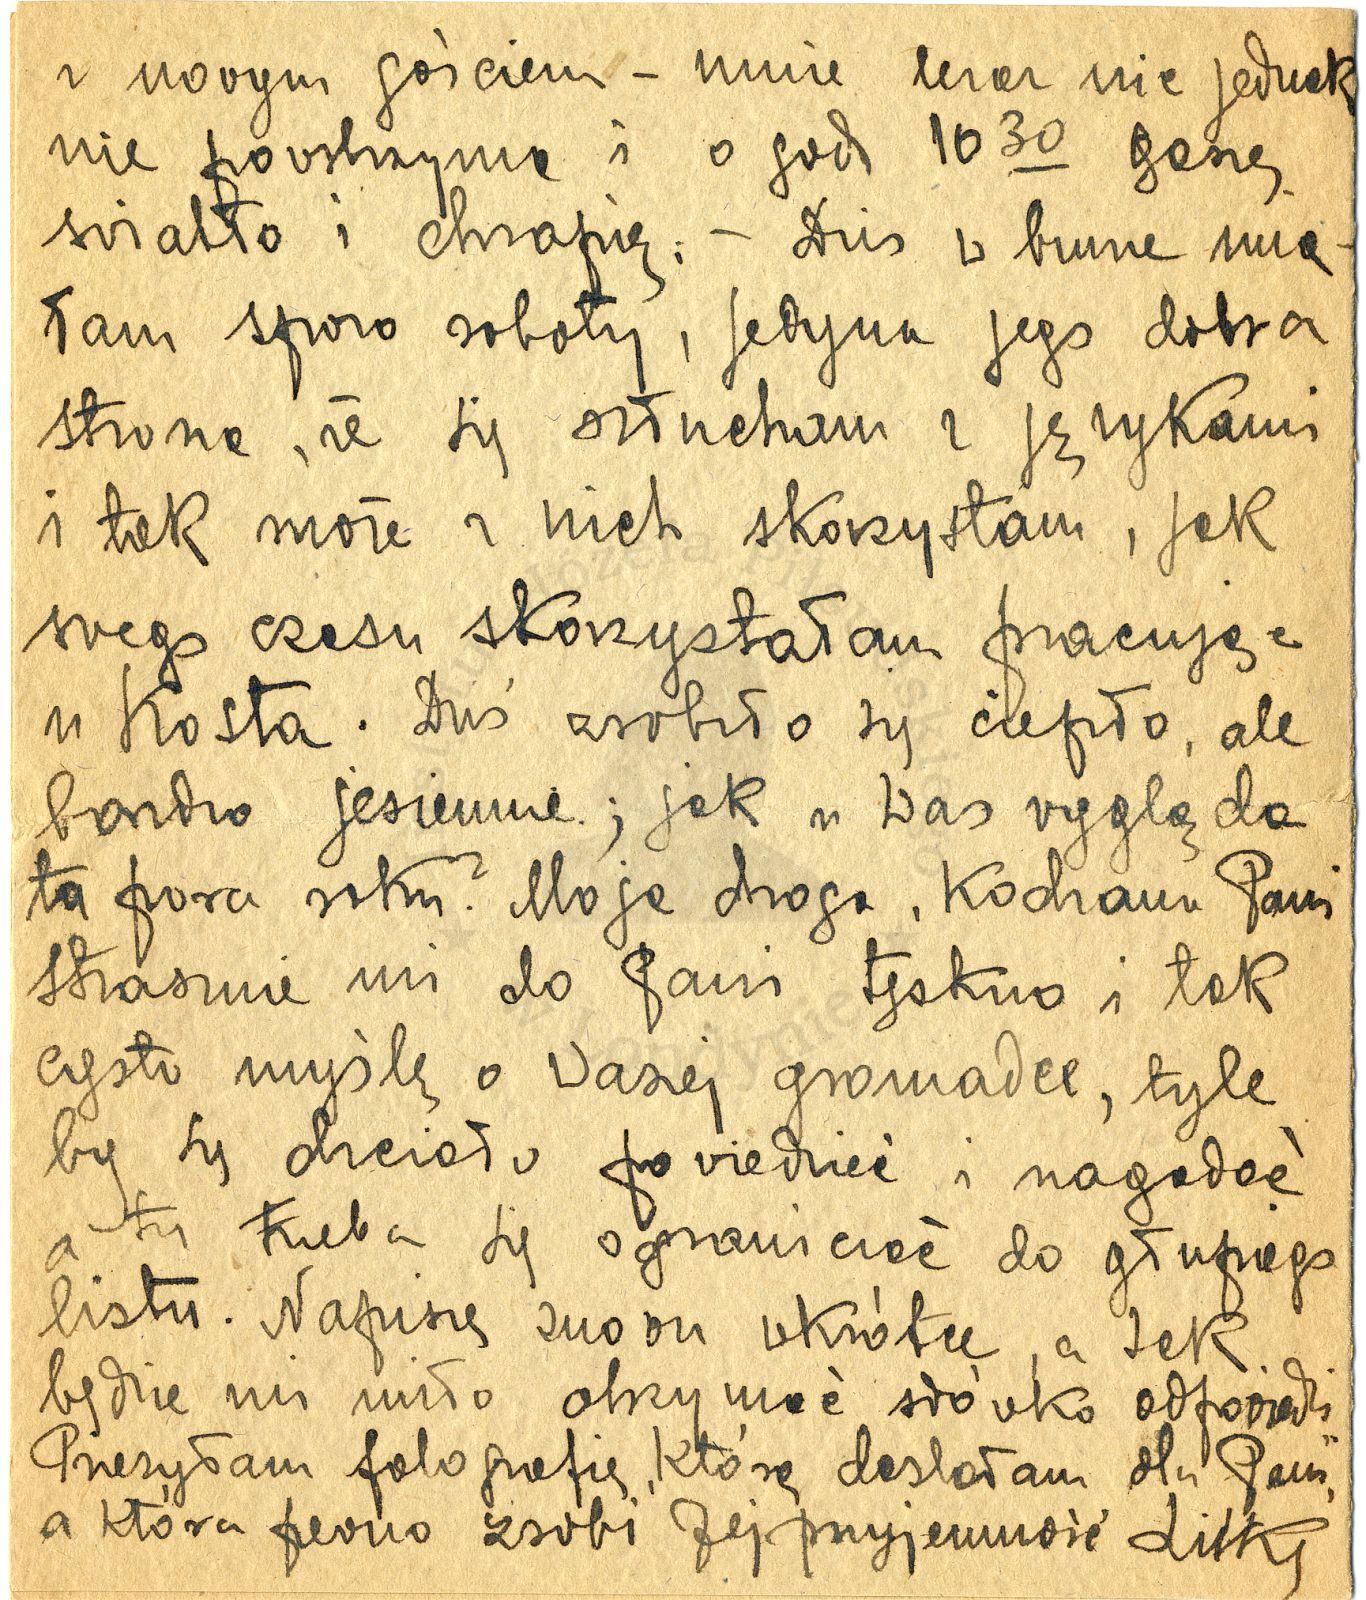 z nowym gościem – mnie teraz nic jednak
nie powstrzyma i o god 10 30 gaszę
światło i chrapię. – Dziś w biurze mia-
łam sporo roboty, jedyna jego dobra
strona, że się osłucham z językami
i tak może z nich skorzystam, jak
swego czasu skorzystałam pracując
u Kosta. Dziś zrobiło się ciepło, ale
bardzo jesiennie; jak u Was wygląda
ta pora roku? Moja droga, Kochana Pani
strasznie mi do Pani tęskno i tak
często myślę o Waszej gromadce, tyle
by się chciało powiedzieć i nagadać
a tu trzeba się ograniczać do głupiego
listu. Napiszę znowu wkrótce, a tak
będzie mi miło otrzymać słówko odpowiedzi
Przesyłam fotografię, którą dostałam dla Pani,
a która pewno zrobi Jej przyjemność Litka